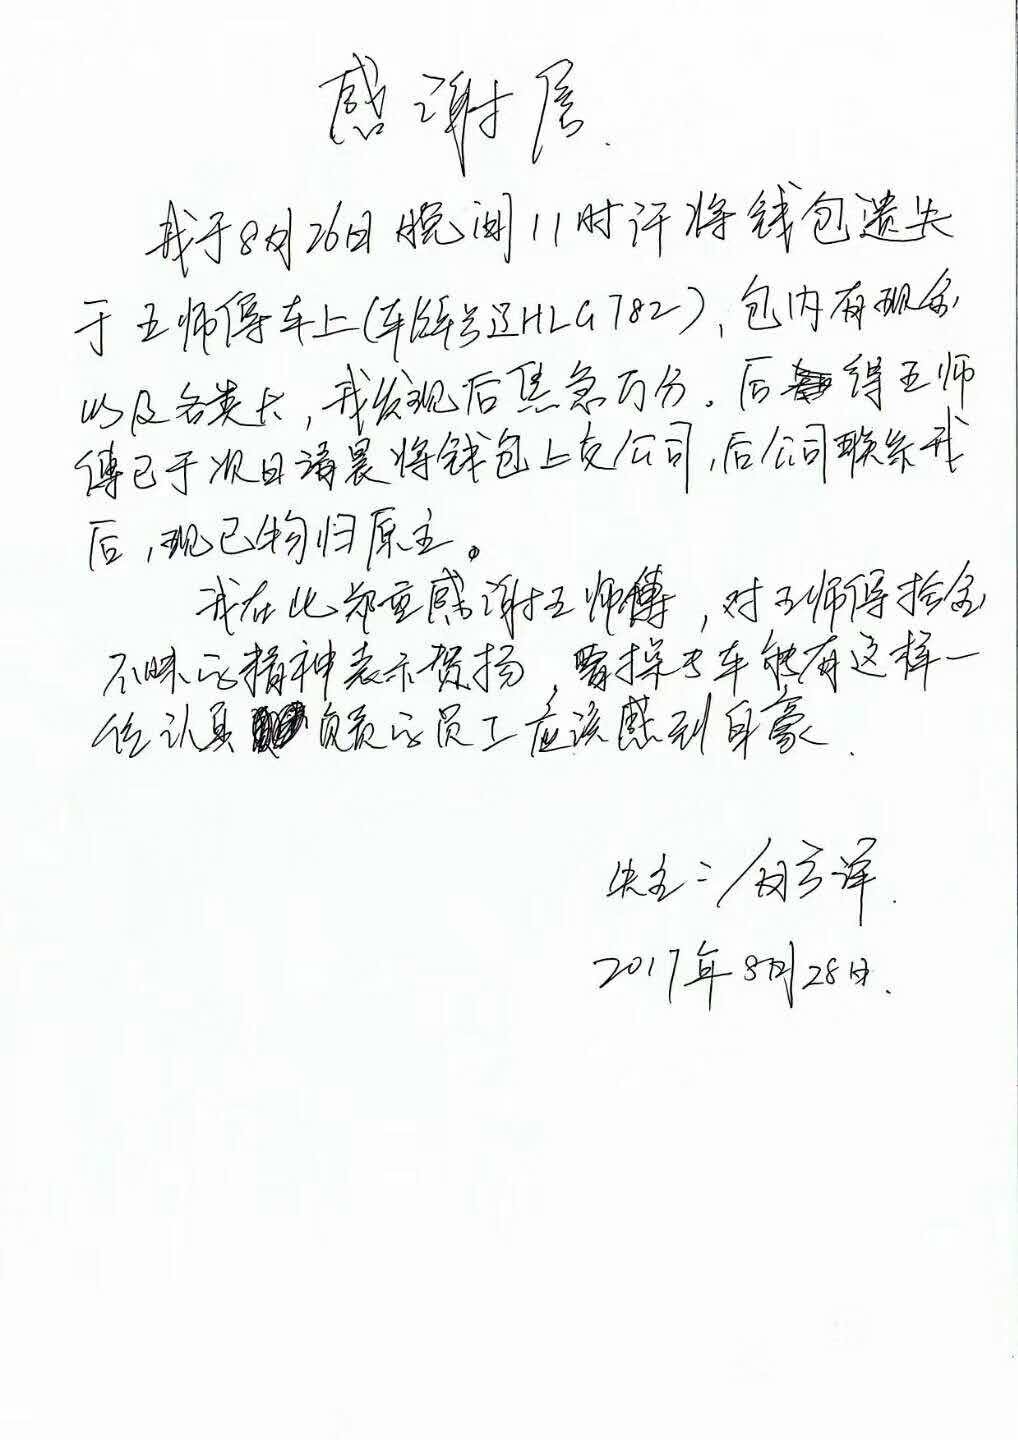 感谢信.
我于8月26日晚间11时许将钱包遗失
于王师傅车上(车牌号辽HLG782),包内有现金
以及各类卡,我发现后焦急万分。后 得王师
傅已于次日清晨将钱包上交公司,后公司联系我
后,现已物归原主。
我在此郑重感谢王师傅,对王师傅拾金
不昧的精神表示赞扬, 专车能有这样一
位认真 负责的员工应该感到自豪.
失主:
2017年8月28日.